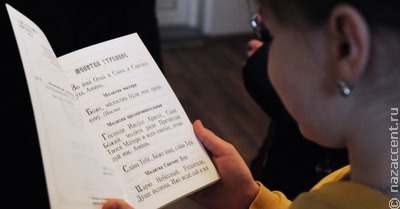 МОЛИТВЫ УТРЕННИЕ
Во имя Отца и Сына и Святаго
Духа. Аминь.
Молитва мытаря
Боже, милостив буди мне греш-
ному. (Поклон)
Молитва предначинательная
Господи Иисусе Христе, Сыне
Божий, молитв ради Пречистыя
Твоея Матере и всех святых, поми-
луй нас. Аминь.
Слава Тебе, Боже наш, слава Тебе.
Молитва Святому Духу
Царю Небесный, Утешителю,
Душе истины, Иже везде сый и вся
© nazaccent.ru